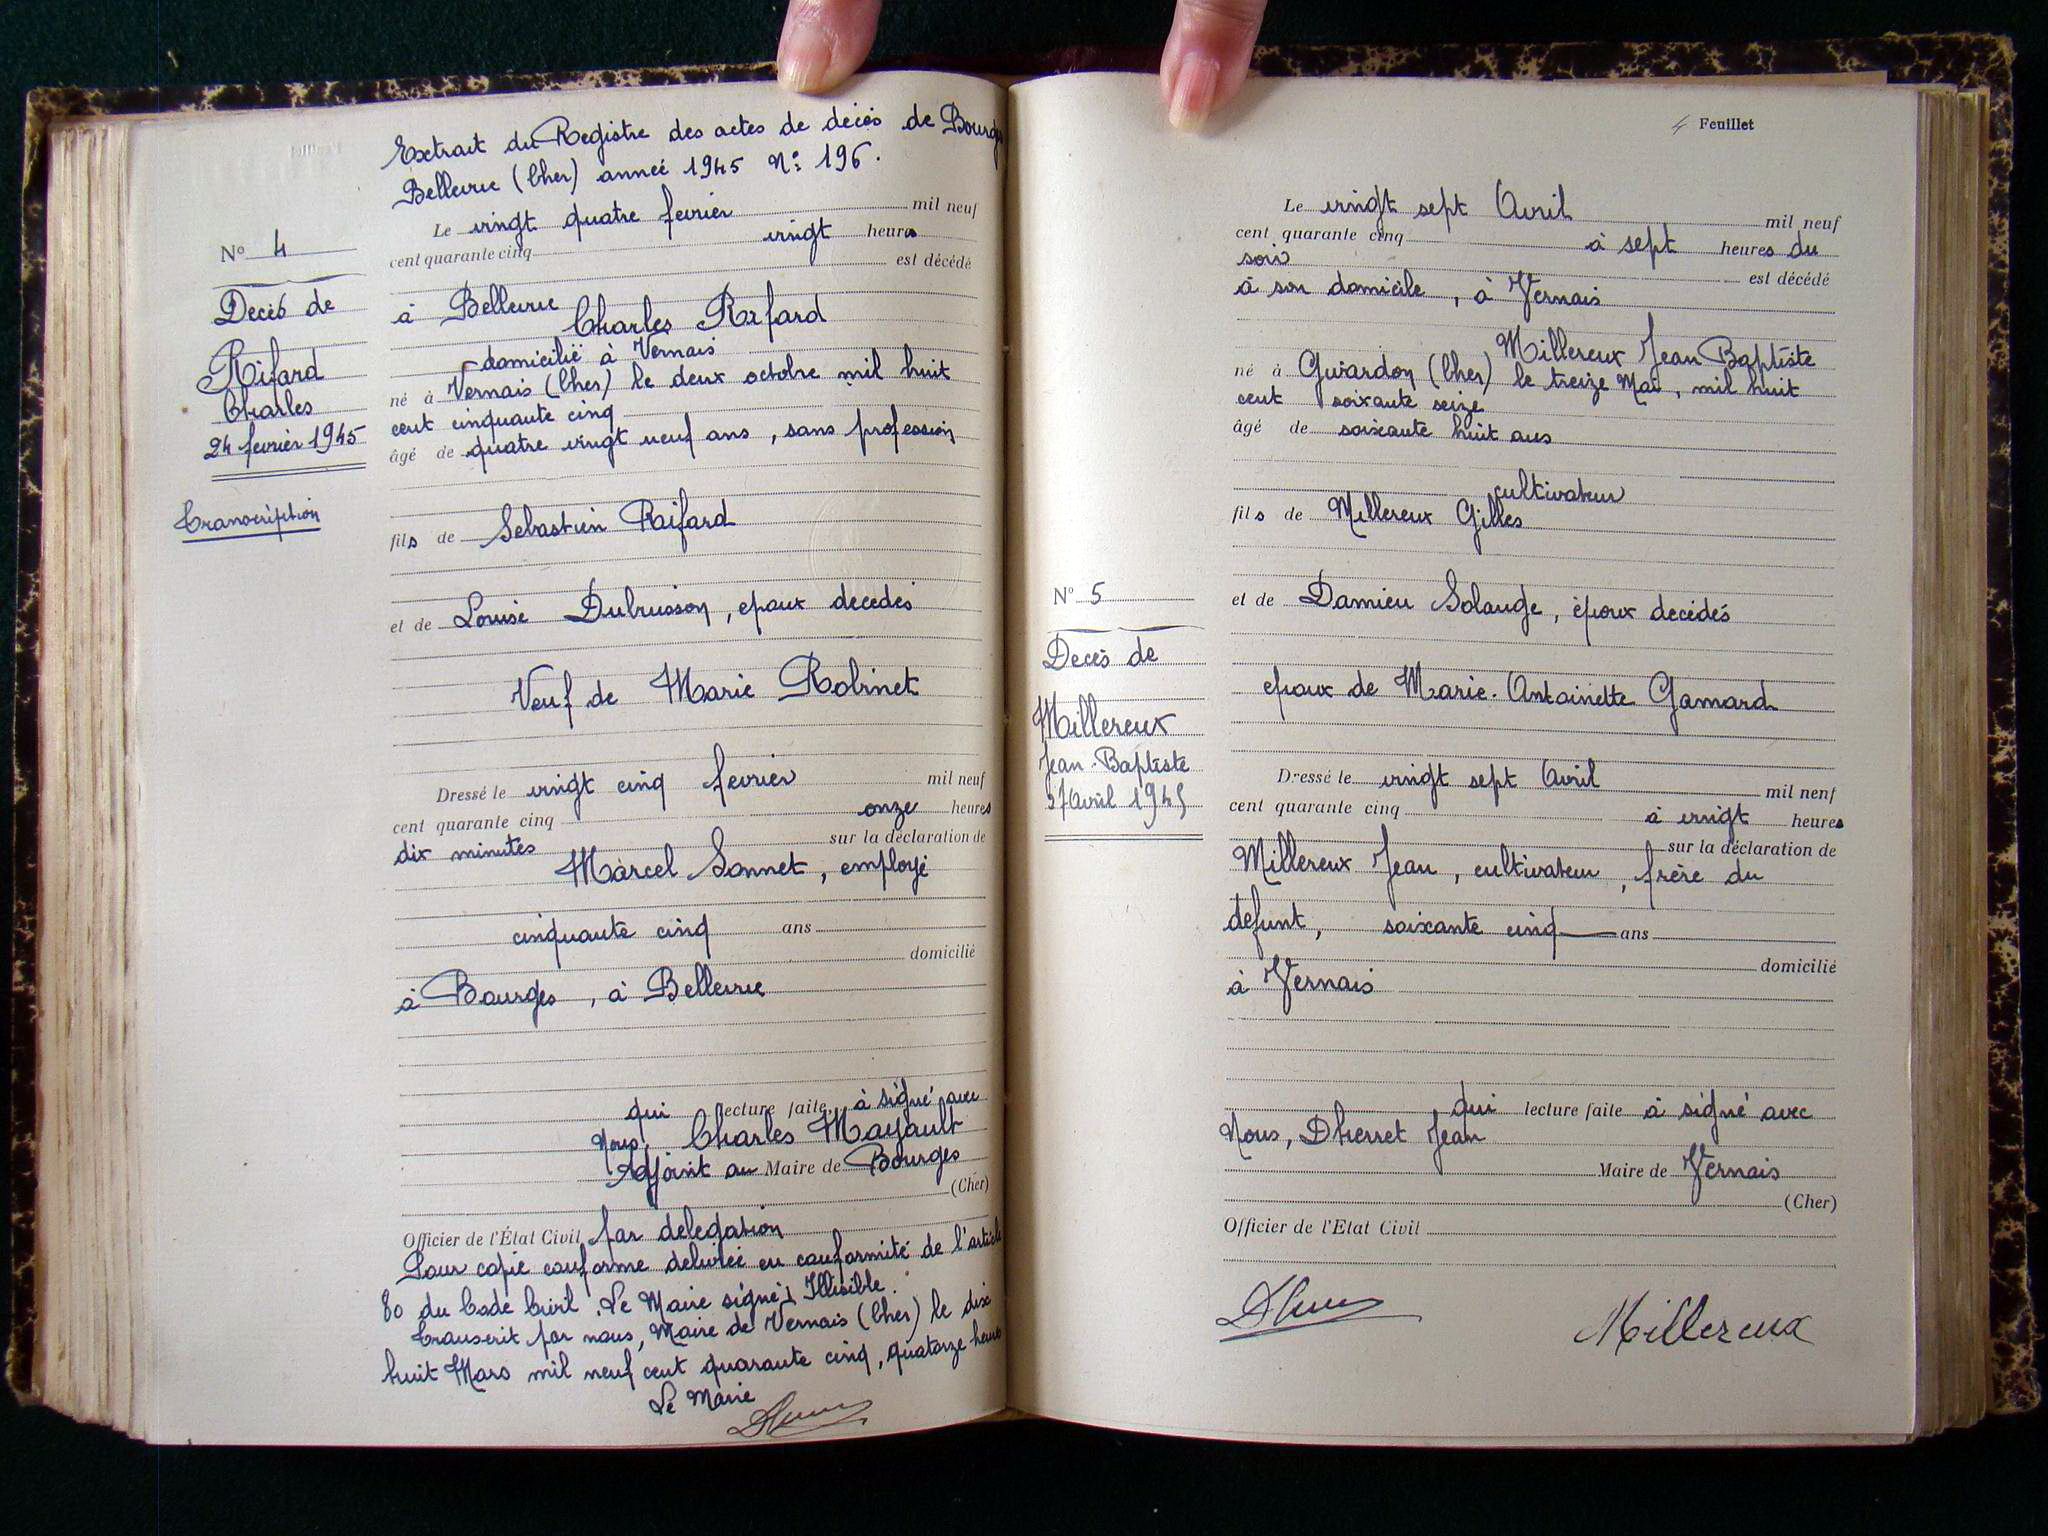 Extrait du Registre des actes de décès de Bourges
Bellevue (Cher) année 1945 No: 196.
Le vingt quatre fevrier mil neuf
cent quarante cinq vingt heures
est décédé
à Bellevue
Charles Rifard
domicilié à Vernais
né à Vernais (Cher) le deux octobre mil huit
cent cinquante cinq
âgé de quatre vingt neuf ans, sans profession
fils de Sebastien Raifard
et de Louise Dubuisson, epoux decedés
Veuf de Marie Robinet
Dressé le vingt cinq fevrier mil neuf
cent quarante cinq onze heures
dix minutes sur la déclaration de
Marcel Sonnet, employé
cinquante cinq ans
domicilié
à Bourges, à Bellevue
qui lecture faite, à signé avec
Nous, Charles Mayault
Adjoint au Maire de Bourges
(Cher)
Officier de l'État Civil par delegation
Pour copie conforme delivrée en conformité de l'article
80 du Code Civil. Le Maire signé: Illisible.
Transcrit par nous, Maire de Vernais (Cher) le dix
huit Mars mil neuf cent quarante cinq, quatorze heures
Le Maire
No 4
Decès de
Rifard
Charles
24 fevrier 1945
Transcription
4 Feuillet
Le vingt sept Avril mil neuf
cent quarante cinq à sept heures du
soir est décédé
à son domicile, à Vernais
Millereux Jean Baptiste
né à Guardon (Cher) le treize Mai, mil huit
cent soixante seize
âgé de soixante huit ans
cultivateur
fils de Millereux Gilles
et de Damien Solange, époux décédés
epoux de Marie-Antoinette Gamard
Dressé le vingt sept Avril mil nenf
cent quarante cinq à vingt heures
sur la déclaration de
Millereux Jean, cultivateur, frère du
défunt, soixante cinq ans
domicilié
à Vernais
qui lecture faite à signé avec
Nous, Dherret Jean
Maire de Vernais
(Cher)
Officier de l'Etat Civil
Millereux
No 5
Decès de
Millereux
Jean-Baptiste
27 Avril 1945